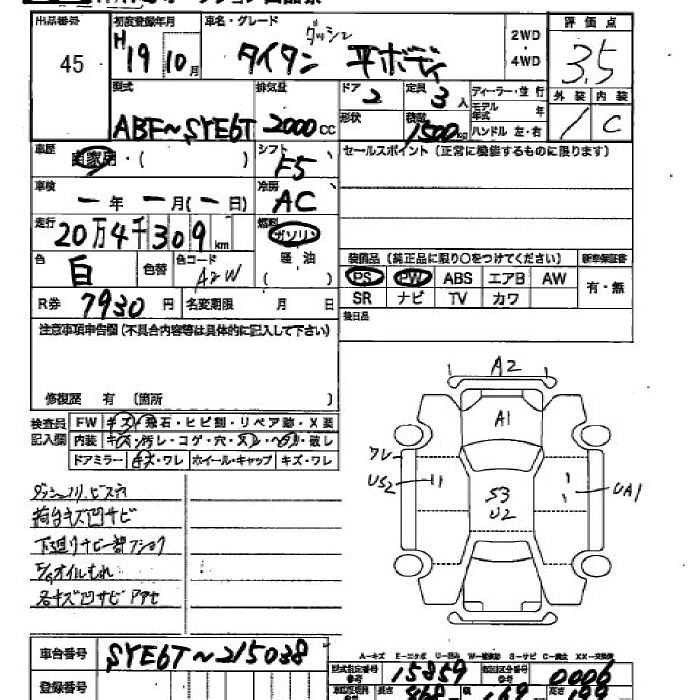 出品番号 初度登録年月 車名・グレード ダッシュ 評価点
45 H19 10月 タイタン 平ボディ 2WD・4WD 3.5
型式 排気量 ドア 定員 ディーラー・並行 外装 内装
ABF~SYE6T 2000cc 2 3人 モデル年式 年 / C
形状 積載 1500kg ハンドル 左・右
車歴 自家用・( ) シフト F5 セールスポイント (正常に機能するものに限ります)
車検 一年 一月(一日) 冷房 AC
走行 20万4千309km 燃料 ガソリン 軽油 ( )
色 白 色替 色コード A2W
装備品 (純正品に限り○をつけてください) 新車保証書
PS PW ABS エアB AW 有・無
SR ナビ TV カワ
R券 7930円 名変期限 月 日 後日品
注意事項申告欄 (不具合内容等は具体的に記入して下さい)
修復歴 有 (箇所 )
検査員記入欄 FW キズ・飛石・ヒビ割・リペア跡・X要
内装 キズ・汚レ・コゲ・穴・スレ・ヘタリ・破レ
ドアミラー キズ・ワレ ホイール・キャップ キズ・ワレ
A2
A1
ワレ
US2
S3
U2
UA1
荷台キズ凹サビ
各キズ凹サビ
A-キズ E-エクボ U-凹み W-補修跡 S-サビ C-腐食 XX-交換済
車台番号 SYE6T~215038
型式指定番号 15859 類別区分番号 0006
登録番号 長さ 468 幅 169 高さ